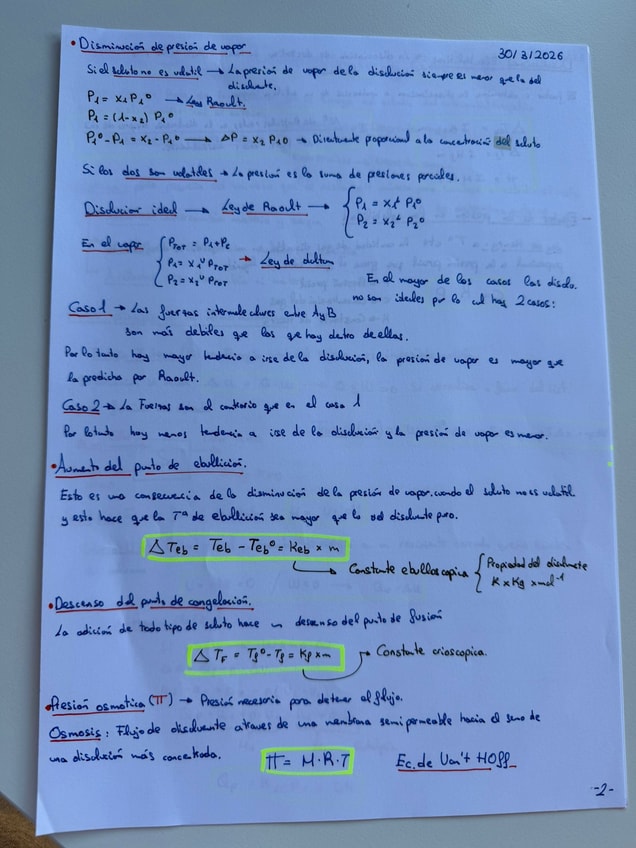 • Disminución de presión de vapor
30/3/2026
Si el soluto no es volatil → La presión de vapor de la disolución siempre es menor que la del
disolvente.
P₁ = x₁ P₁⁰ → Ley Raoult.
P₁ = (1-x₂) P₁⁰
P₁⁰ - P₁ = x₂ - P₁⁰ → ΔP = x₂ P₁⁰ → Directamente proporcional a la concentración del soluto
Si los dos son volatiles → La presión es la suma de presiones parciales.
Disolución ideal → Ley de Raoult → { P₁ = x₁ᴸ P₁⁰
P₂ = x₂ᴸ P₂⁰
En el vapor { PTOT = P₁+P₂
P₁ = x₁ᵛ PTOT → Ley de dalton
P₂ = x₂ᵛ PTOT
En el mayor de los casos las disolu.
no son ideales por lo cual hay 2 casos:
Caso 1 → Las fuerzas intermoleculares entre A y B
son más debiles que las que hay dentro de ellas.
Por lo tanto hay mayor tendencia a irse de la disolución, la presión de vapor es mayor que
la predicha por Raoult.
Caso 2 → La Fuerzas son al contrario que en el caso 1
Por lo tanto hay menos tendencia a irse de la disolución y la presión de vapor es menor.
• Aumento del punto de ebullición.
Esto es una consecuencia de la disminución de la presión de vapor. cuando el soluto no es volatil
y esto hace que la Tª de ebullición sea mayor que la del disolvente puro.
Δ Teb = Teb - Teb⁰ = Keb × m
→ Constante ebulloscopica { Propiedad del disolvente
K × Kg × mol⁻¹
• Descenso del punto de congelación.
La adición de todo tipo de soluto hace un descenso del punto de fusión
Δ Tf = Tf⁰ - Tf = Kf × m → Constante crioscopica.
• Presión osmotica (π) → Presión necesaria para detener el flujo.
Osmosis: Flujo de disolvente a traves de una membrana semipermeable hacia el seno de
una disolución más concentrada.
π = M · R · T
Ec. de Van't HOff
-2-